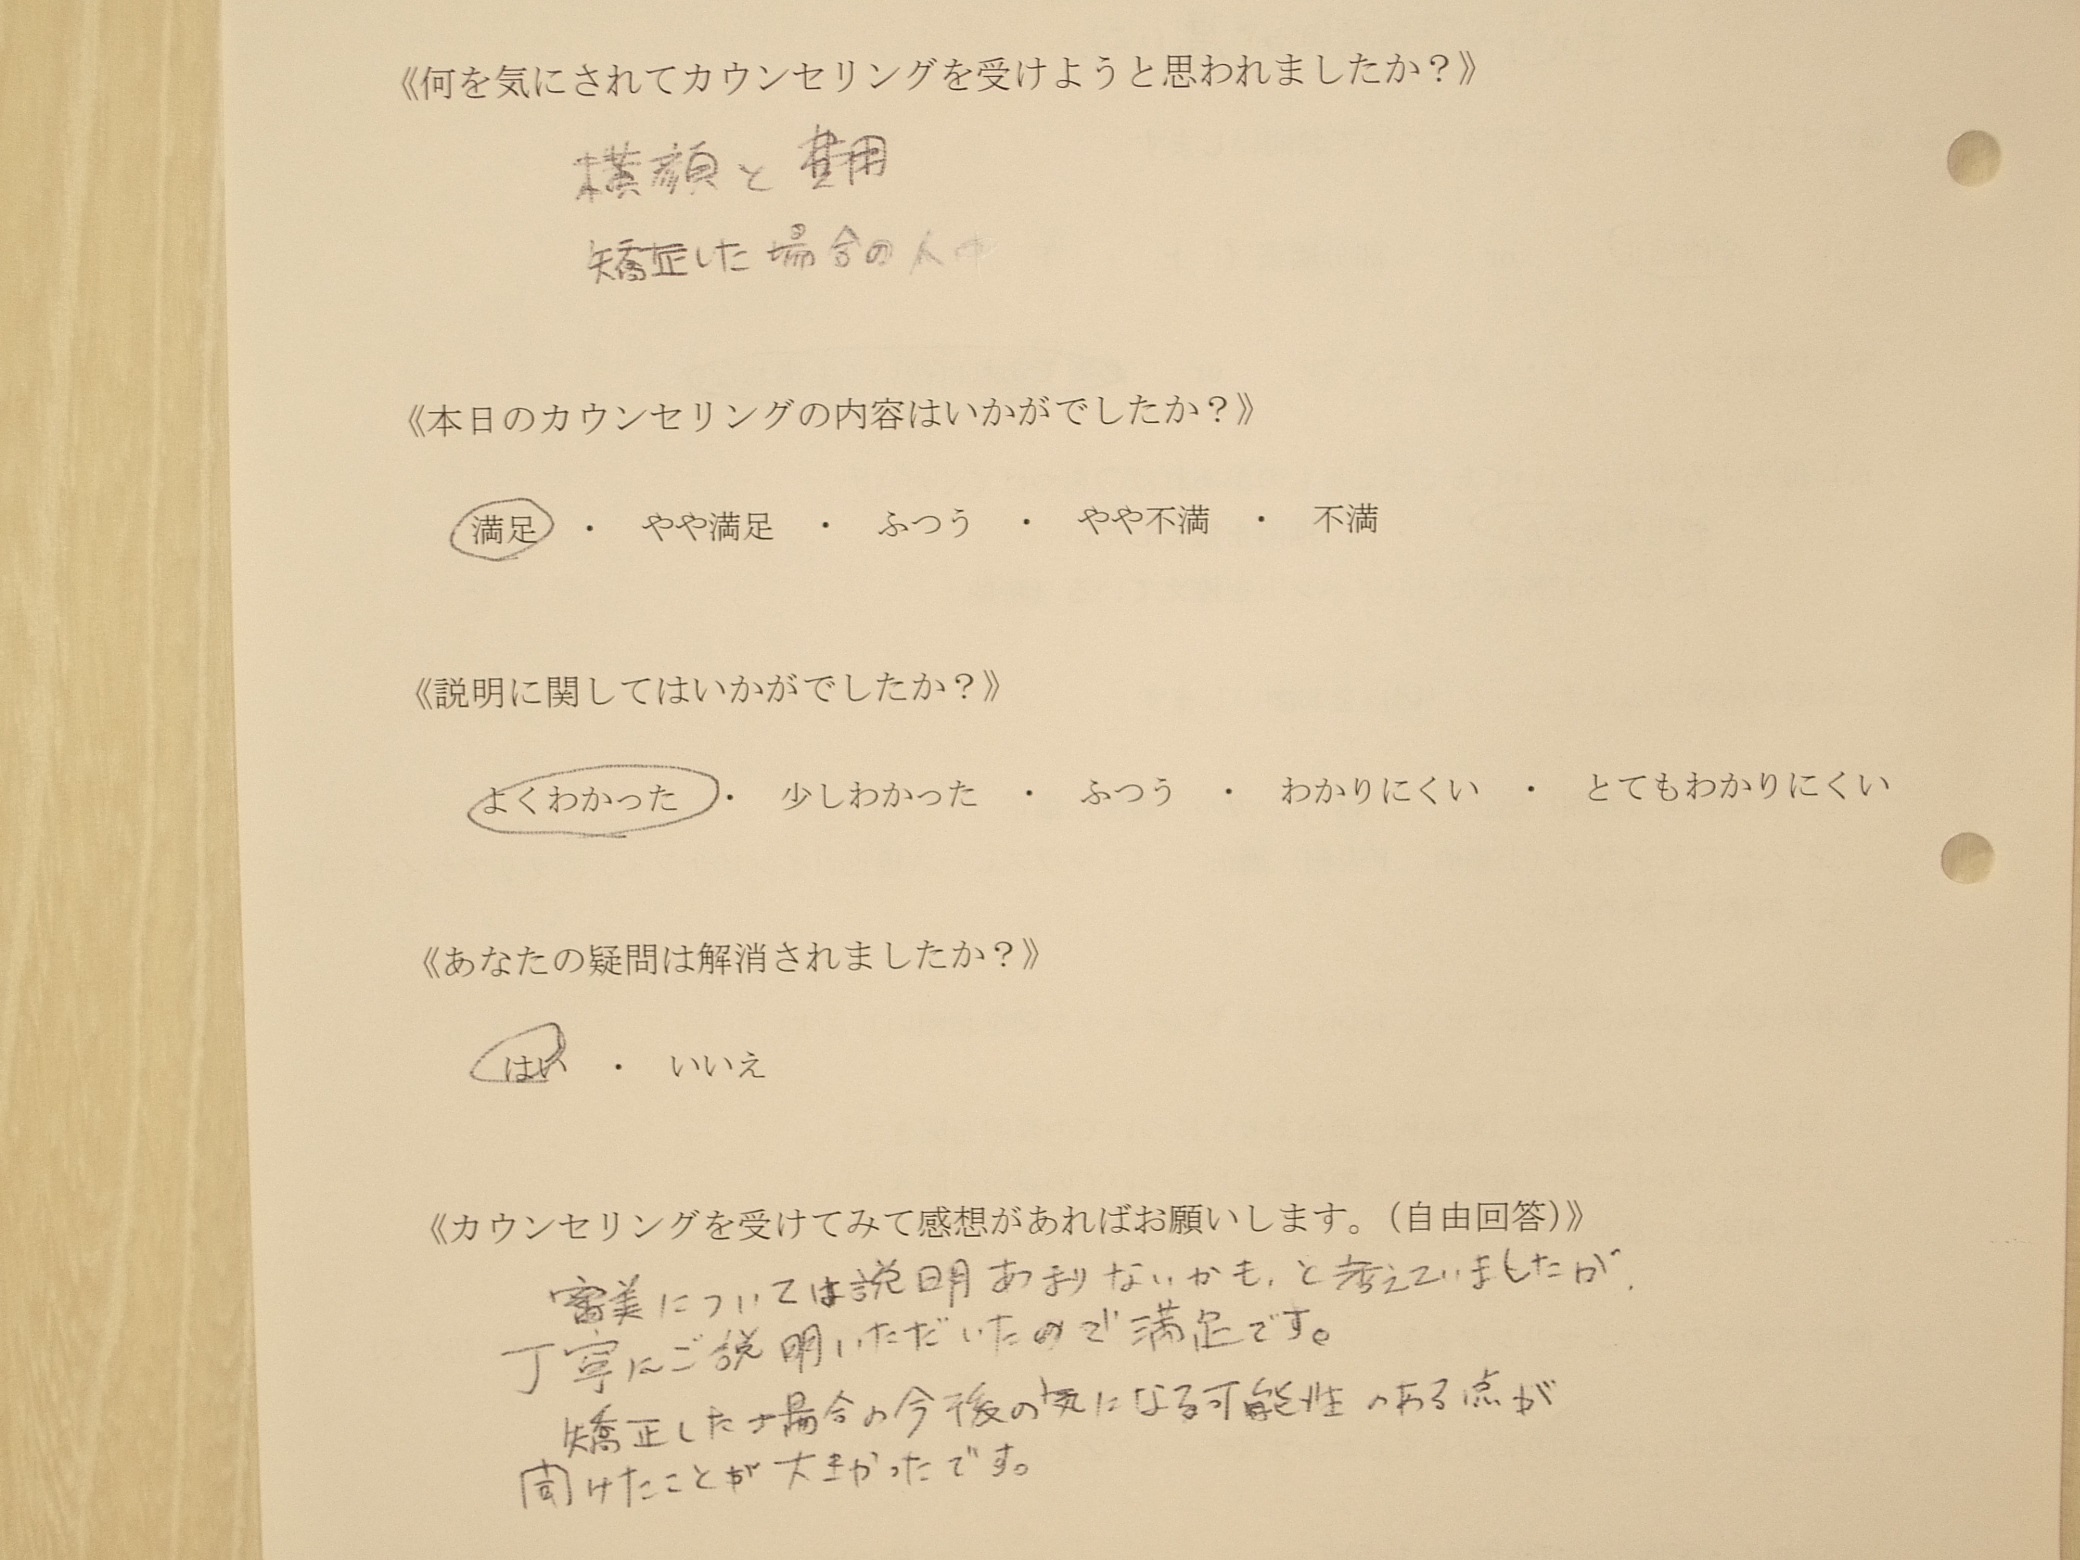 《何を気にされてカウンセリングを受けようと思われましたか？》
横顔と費用
矯正した場合の人中
《本日のカウンセリングの内容はいかがでしたか？》
満足 ・ やや満足 ・ ふつう ・ やや不満 ・ 不満
《説明に関してはいかがでしたか？》
よくわかった ・ 少しわかった ・ ふつう ・ わかりにくい ・ とてもわかりにくい
《あなたの疑問は解消されましたか？》
はい ・ いいえ
《カウンセリングを受けてみて感想があればお願いします。（自由回答）》
審美については説明あまりないかも、と考えていましたが、
丁寧にご説明いただいたので満足です。
矯正した場合の今後の気になる可能性のある点が
聞けたことが大きかったです。